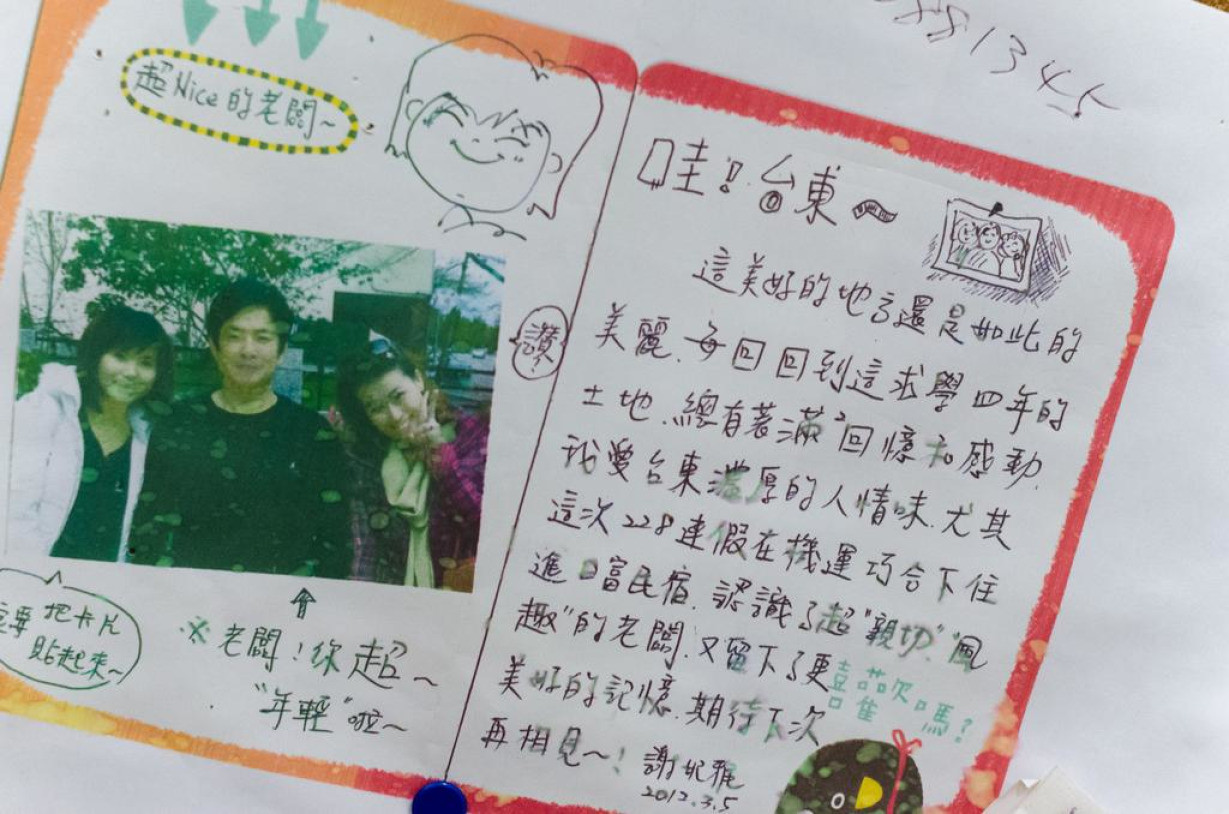 超Nice的老闆~
讚!
要把卡片
貼起來~
※老闆!你超~
"年輕"啦~
81345
哇!台東~
這美好的地方還是如此的
美麗.每回回到這求學四年的
土地.總有著滿滿回憶和感動.
我愛台東濃厚的人情味.尤其
這次228連假在機運巧合下住
進日富民宿.認識了超"親切""風
趣"的老闆.又留下了更
美好的記憶.期待下次
再相見~!
喜歡嗎?
謝妮雅
2012.3.5